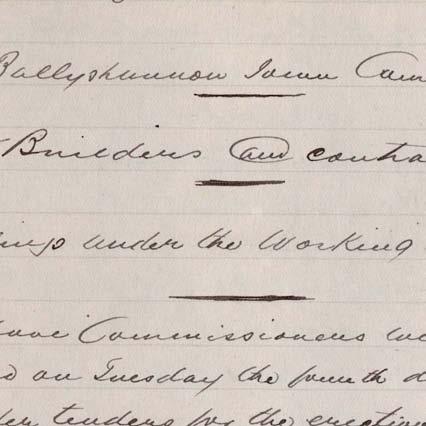 Ballyshannon Town Com
Builders and contra
ings under the Working
ove Commissioners we
d on Tuesday the fourth d
der tenders for the erection